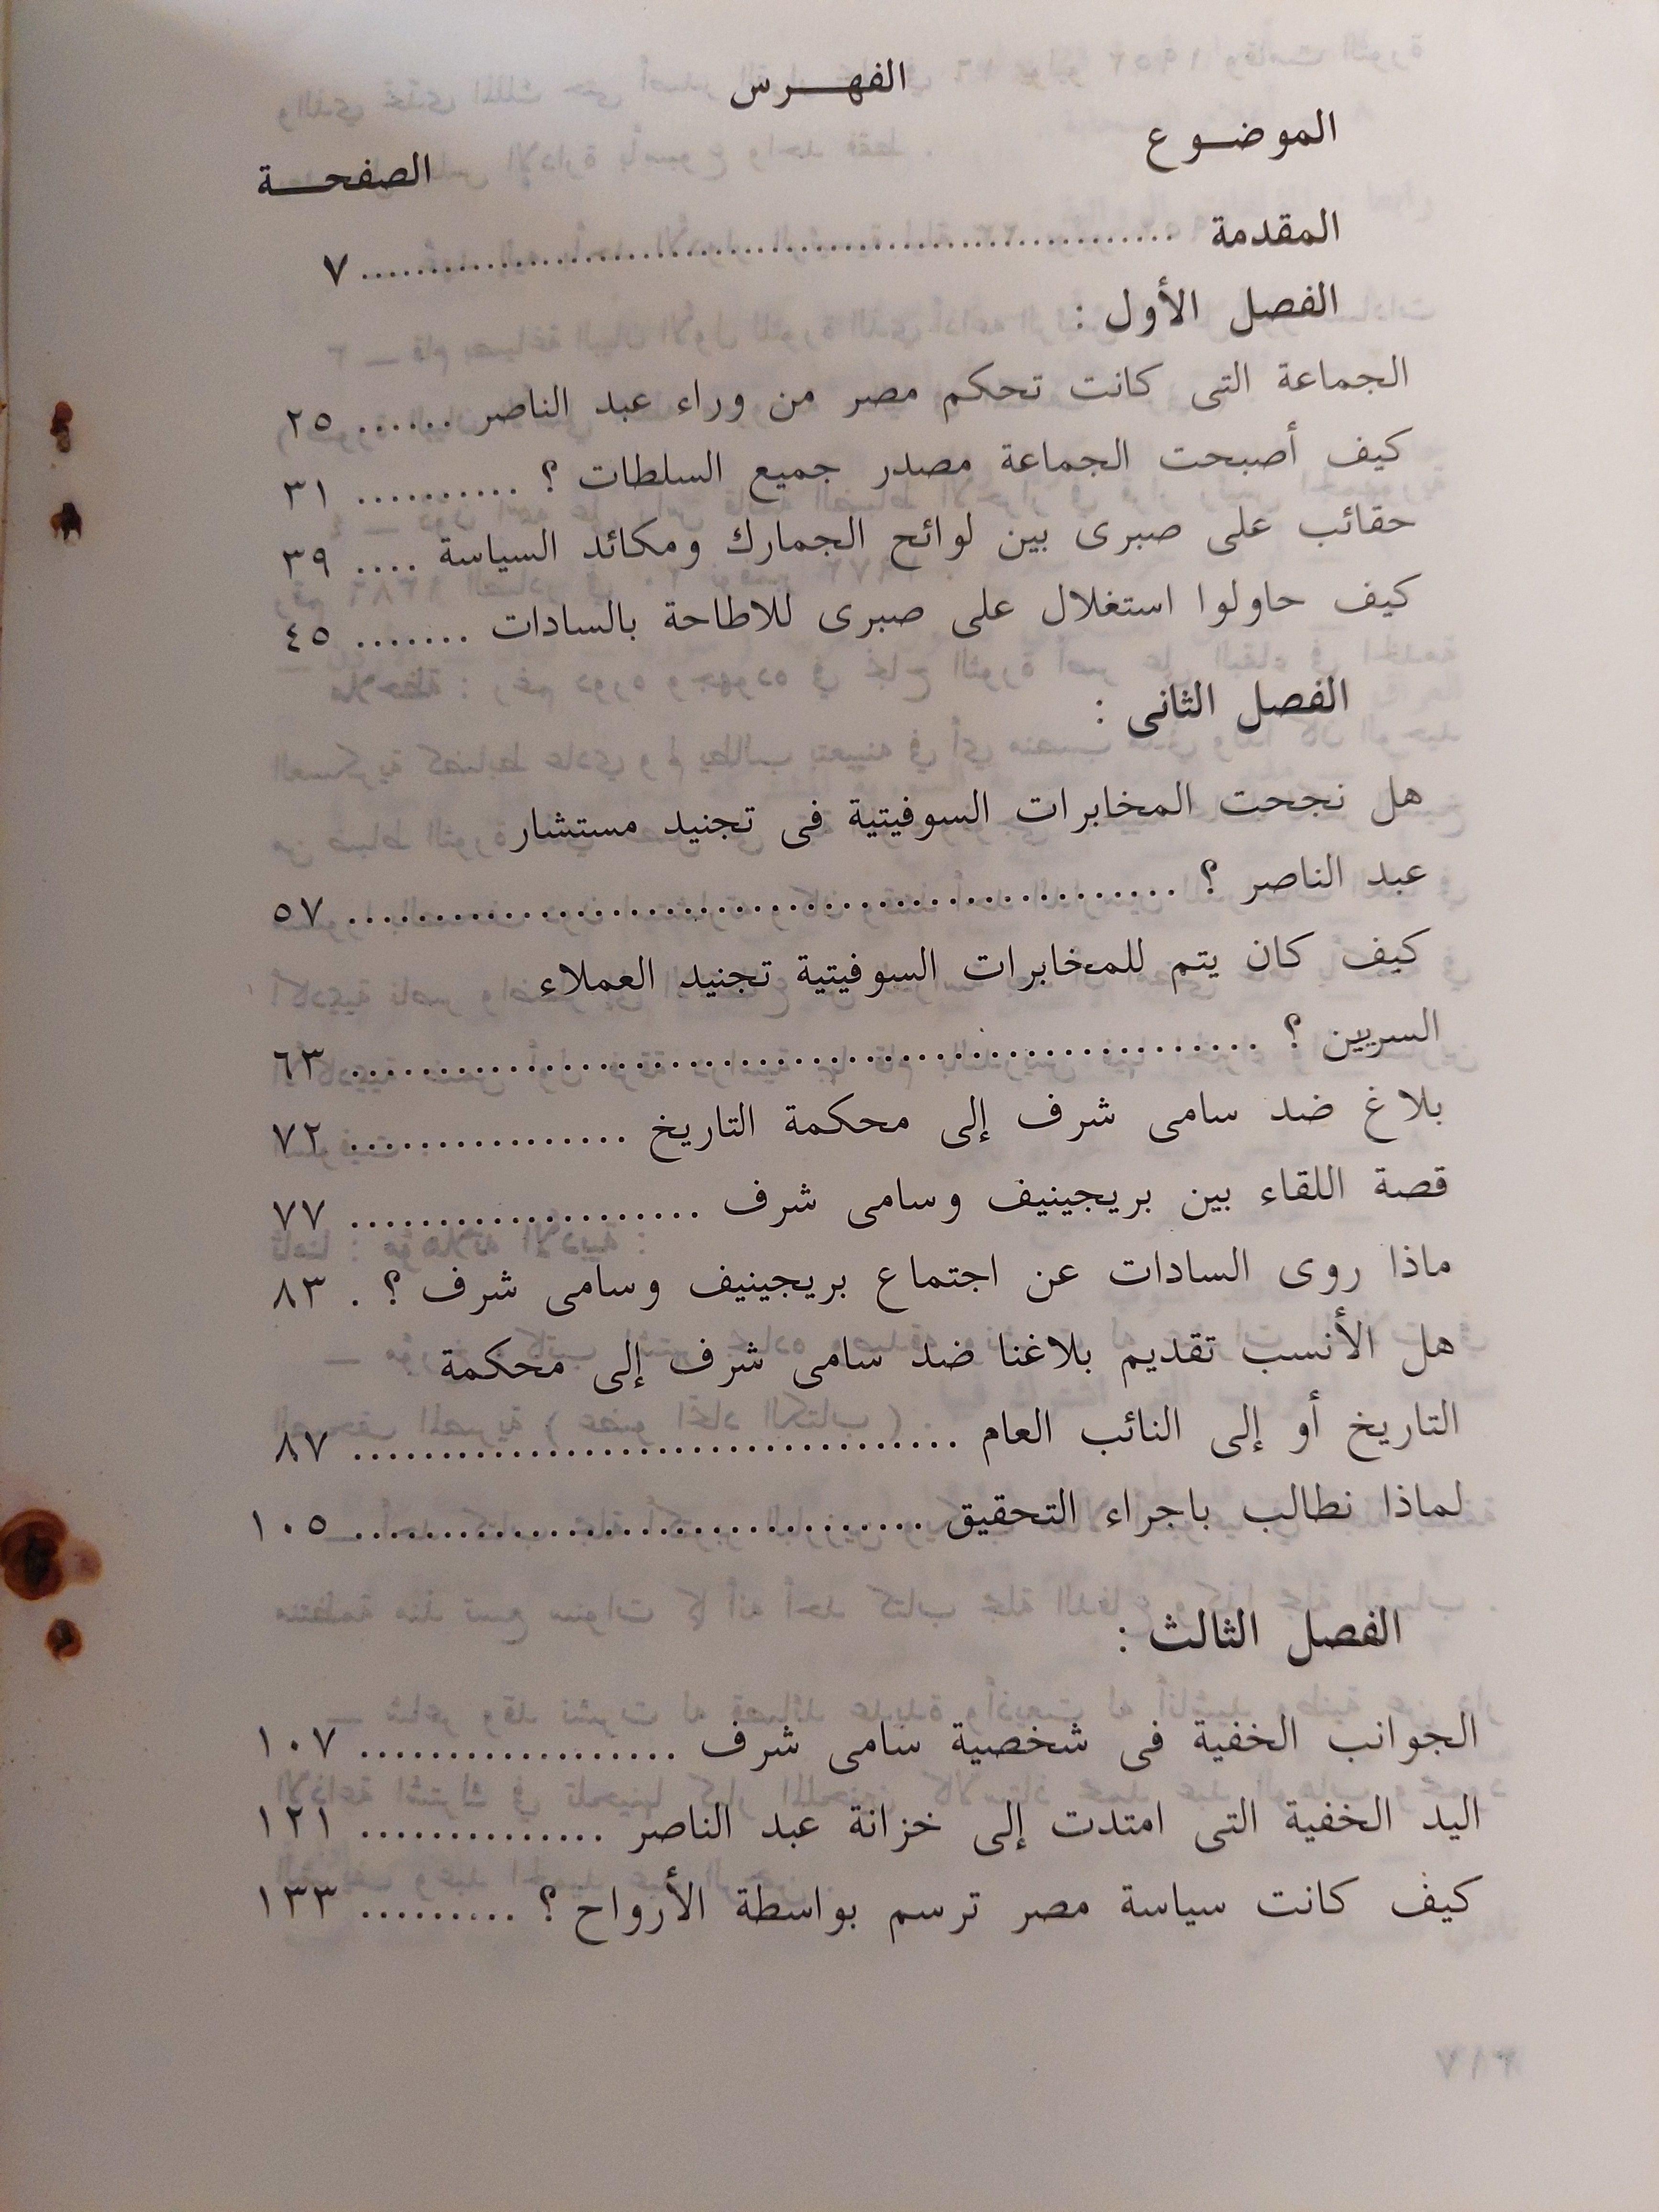 الفهـــرس
الموضـوع
الصفحـــة
المقدمة ........................................ ٧
الفصل الأول :
الجماعة التى كانت تحكم مصر من وراء عبد الناصر ...... ٢٥
كيف أصبحت الجماعة مصدر جميع السلطات ؟ .......... ٣١
حقائب على صبرى بين لوائح الجمارك ومكائد السياسة .... ٣٩
كيف حاولوا استغلال على صبرى للاطاحة بالسادات ....... ٤٥
الفصل الثانى :
هل نجحت المخابرات السوفيتية فى تجنيد مستشار
عبد الناصر ؟ ........................................ ٥٧
كيف كان يتم للمخابرات السوفيتية تجنيد العملاء
السريين ؟ ........................................ ٦٣
بلاغ ضد سامى شرف إلى محكمة التاريخ ................ ٧٢
قصة اللقاء بين بريجينيف وسامى شرف .................... ٧٧
ماذا روى السادات عن اجتماع بريجينيف وسامى شرف ؟ . ٨٣
هل الأنسب تقديم بلاغنا ضد سامى شرف إلى محكمة
التاريخ أو إلى النائب العام .................................. ٨٧
لماذا نطالب باجراء التحقيق ................................ ١٠٥
الفصل الثالث :
الجوانب الخفية فى شخصية سامى شرف ................... ١٠٧
اليد الخفية التى امتدت إلى خزانة عبد الناصر .............. ١٢١
كيف كانت سياسة مصر ترسم بواسطة الأرواح ؟ ......... ١٣٣